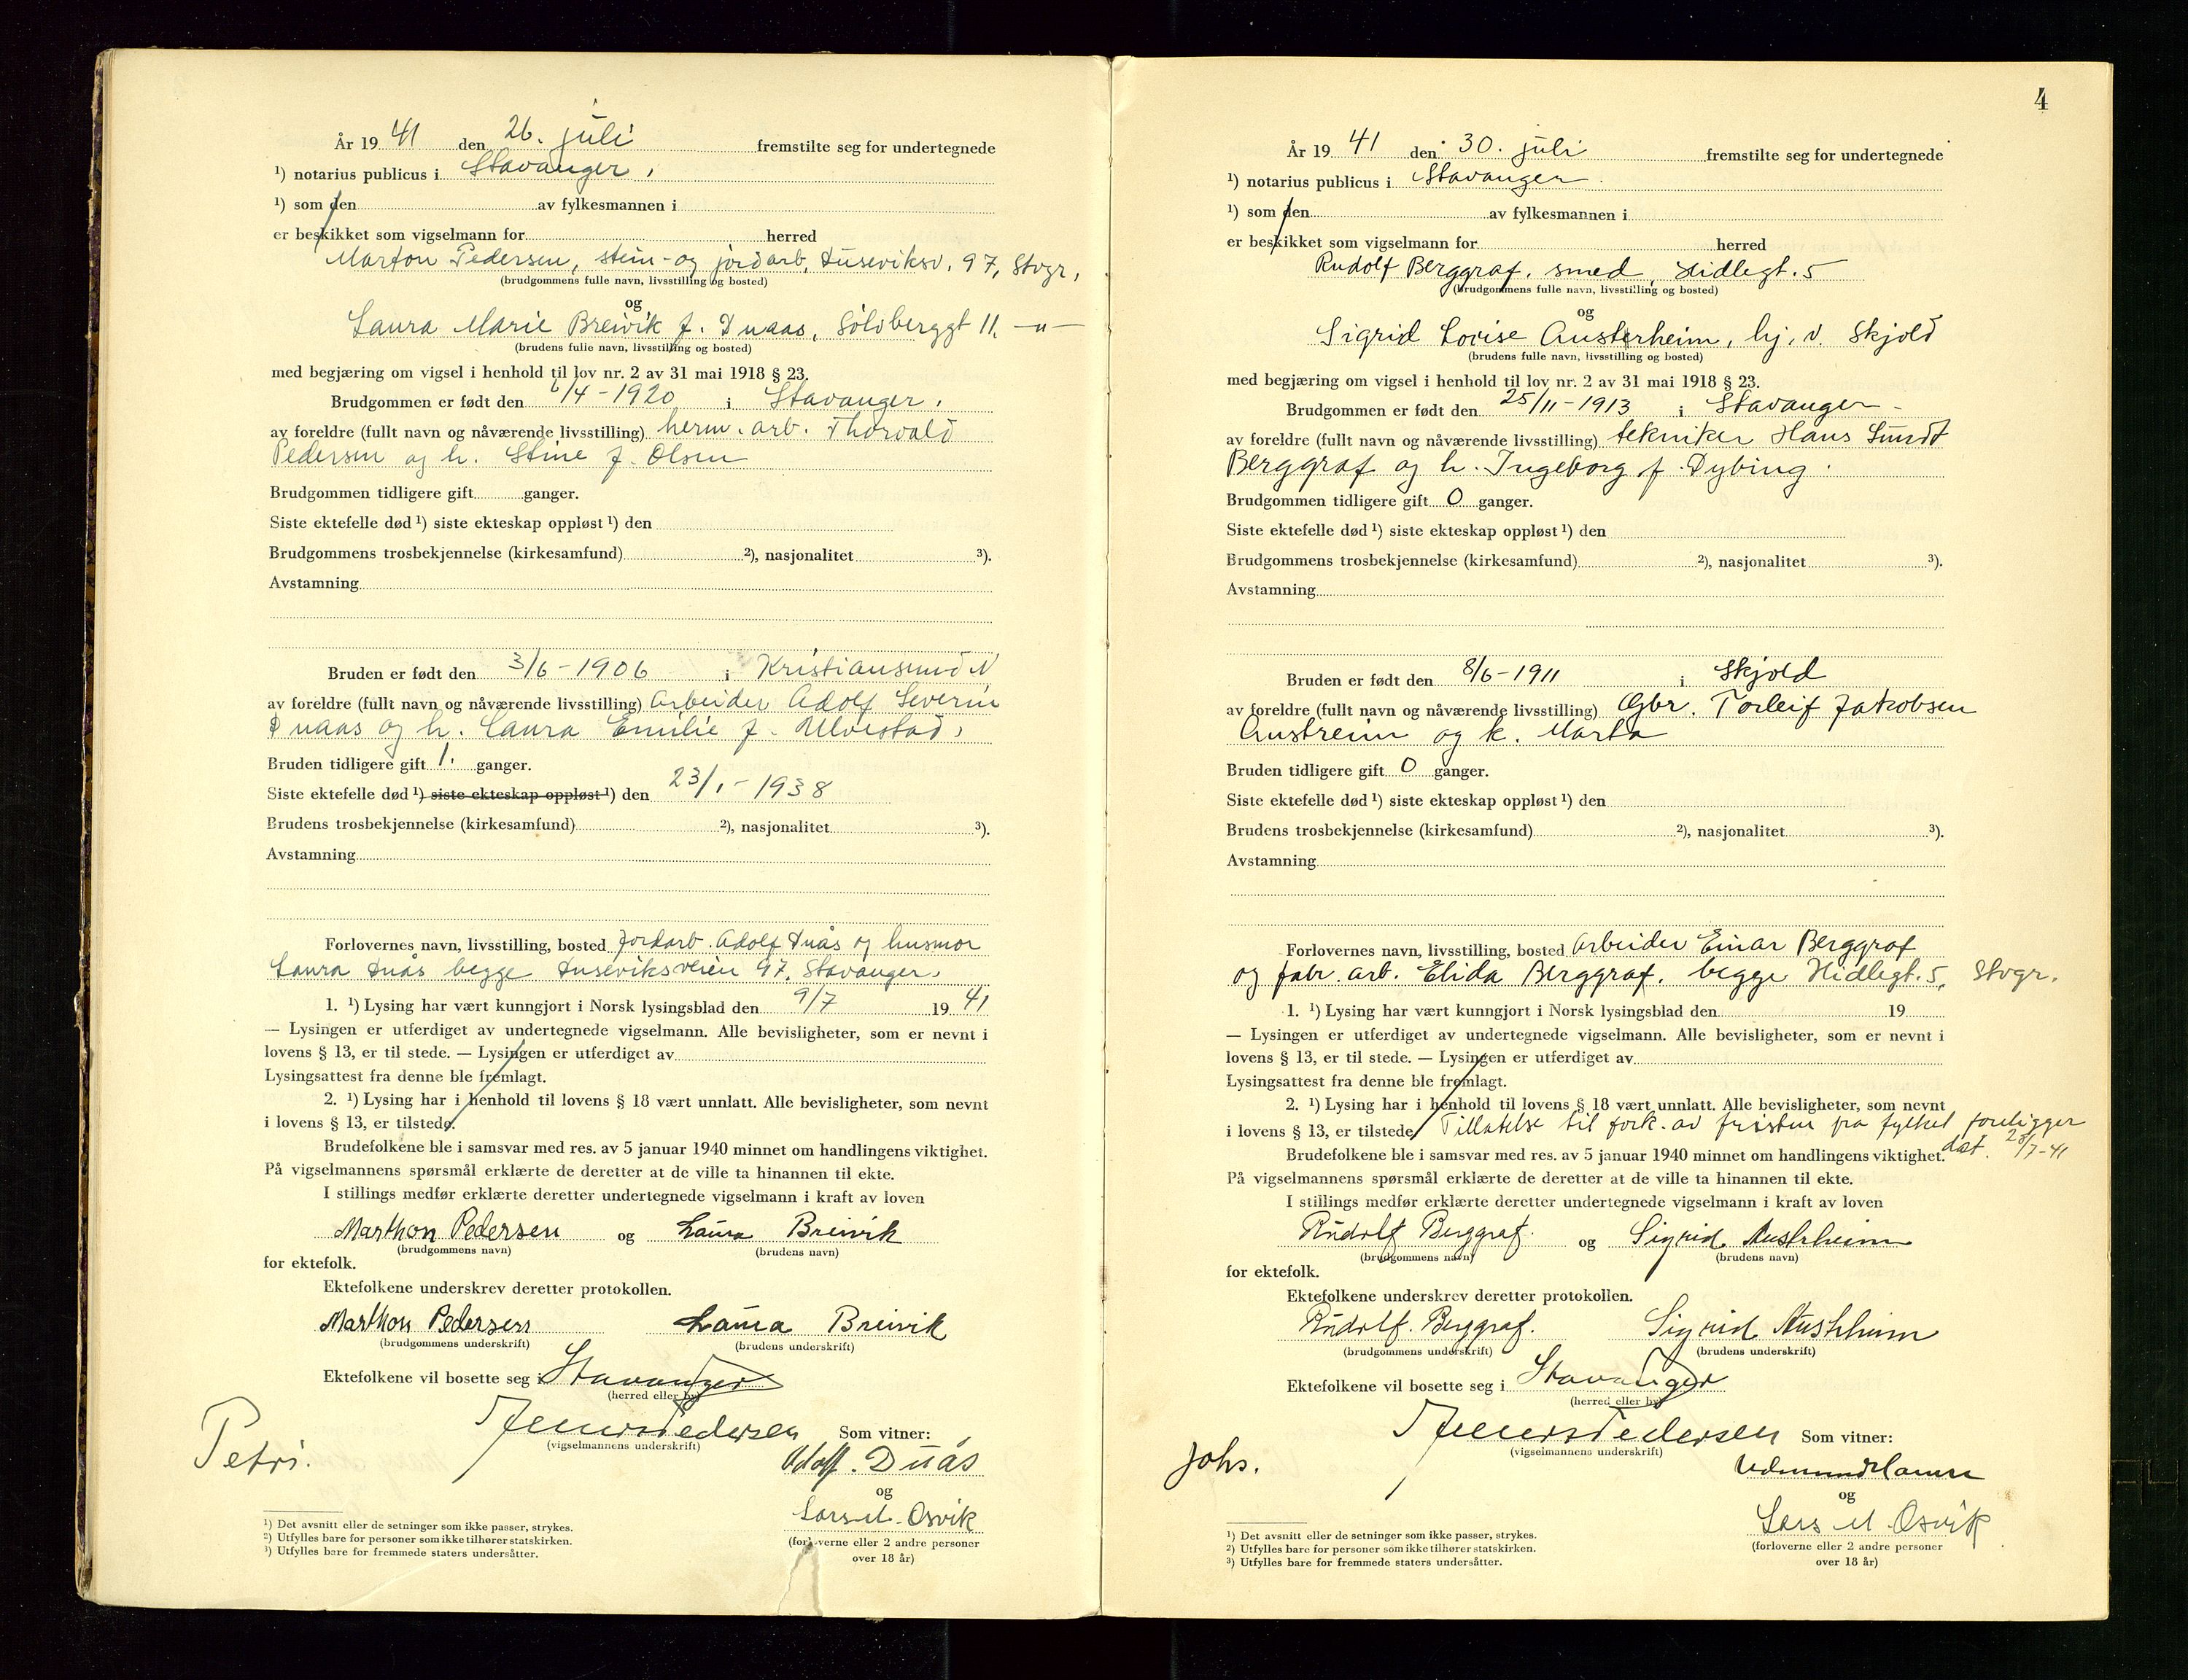 År 19 41 den 26. juli fremstilte seg for undertegnede
¹) notarius publicus i Stavanger.
¹) som den av fylkesmannen i
er beskikket som vigselmann for herred
Marton Pedersen, stein- og jordarb, Duseviksv. 97, Stvgr,
(brudgommens fulle navn, livsstilling og bosted)
og
Laura Marie Breivik f. Duaas, Sölvberggt 11, –"–
(brudens fulle navn, livsstilling og bosted)
med begjæring om vigsel i henhold til lov nr. 2 av 31 mai 1918 § 23.
Brudgommen er født den 6/4 - 1920 i Stavanger.
av foreldre (fullt navn og nåværende livsstilling) herm. arb. Thorvald
Pedersen og h. Stine f. Olsen
Brudgommen tidligere gift ganger.
Siste ektefelle død ¹) siste ekteskap oppløst ¹) den
Brudgommens trosbekjennelse (kirkesamfund) ²), nasjonalitet ³).
Avstamning
Bruden er født den 3/6 - 1906 i Kristiansund N
av foreldre (fullt navn og nåværende livsstilling) Arbeider Adolf Severin
Duaas og h. Laura Emilie f. Ulvestad,
Bruden tidligere gift 1. ganger.
Siste ektefelle død ¹) siste ekteskap oppløst ¹) den 23/1 - 1938
Brudens trosbekjennelse (kirkesamfund) ²), nasjonalitet ³).
Avstamning
Forlovernes navn, livsstilling, bosted Jordarb. Adolf Duås og husmor
Laura Duås begge Duseviksveien 97, Stavanger.
1. ¹) Lysing har vært kunngjort i Norsk lysingsblad den 9/7 19 41
— Lysingen er utferdiget av undertegnede vigselmann. Alle bevisligheter, som er nevnt i
lovens § 13, er til stede. — Lysingen er utferdiget av
Lysingsattest fra denne ble fremlagt.
2. ¹) Lysing har i henhold til lovens § 18 vært unnlatt. Alle bevisligheter, som nevnt
i lovens § 13, er tilstede.
Brudefolkene ble i samsvar med res. av 5 januar 1940 minnet om handlingens viktighet.
På vigselmannens spørsmål erklærte de deretter at de ville ta hinannen til ekte.
I stillings medfør erklærte deretter undertegnede vigselmann i kraft av loven
Marthon Pedersen og Laura Breivik
(brudgommens navn) (brudens navn)
for ektefolk.
Ektefolkene underskrev deretter protokollen.
Marthon Pedersen Laura Breivik
(brudgommens underskrift) (brudens underskrift)
Ektefolkene vil bosette seg i Stavanger
(herred eller by)
Petri.
Jens Pedersen Som vitner:
(vigselmannens underskrift)
Adolf. Duås
og
Lars M. Osvik
(forloverne eller 2 andre personer
over 18 år)
¹) Det avsnitt eller de setninger som ikke passer, strykes.
²) Utfylles bare for personer som ikke tilhører statskirken.
³) Utfylles bare for fremmede staters undersåtter.
4
År 19 41 den 30. juli fremstilte seg for undertegnede
¹) notarius publicus i Stavanger.
¹) som den av fylkesmannen i
er beskikket som vigselmann for herred
Rudolf Berggraf, smed, Hidlegt. 5
(brudgommens fulle navn, livsstilling og bosted)
og
Sigrid Lovise Austerheim, hj. v. Skjold
(brudens fulle navn, livsstilling og bosted)
med begjæring om vigsel i henhold til lov nr. 2 av 31 mai 1918 § 23.
Brudgommen er født den 25/11 - 1913 i Stavanger -
av foreldre (fullt navn og nåværende livsstilling) tekniker Hans Sundt
Berggraf og h. Ingeborg f. Dybing.
Brudgommen tidligere gift 0 ganger.
Siste ektefelle død ¹) siste ekteskap oppløst ¹) den
Brudgommens trosbekjennelse (kirkesamfund) ²), nasjonalitet ³).
Avstamning
Bruden er født den 8/6 - 1911 i Skjold
av foreldre (fullt navn og nåværende livsstilling) Gbr. Torleif Jakobsen
Austreim og k. Marta
Bruden tidligere gift 0 ganger.
Siste ektefelle død ¹) siste ekteskap oppløst ¹) den
Brudens trosbekjennelse (kirkesamfund) ²), nasjonalitet ³).
Avstamning
Forlovernes navn, livsstilling, bosted Arbeider Einar Berggraf
og fabr. arb. Elida Berggraf, begge Hidlegt. 5, Stvgr.
1. ¹) Lysing har vært kunngjort i Norsk lysingsblad den 19
— Lysingen er utferdiget av undertegnede vigselmann. Alle bevisligheter, som er nevnt i
lovens § 13, er til stede. — Lysingen er utferdiget av
Lysingsattest fra denne ble fremlagt.
2. ¹) Lysing har i henhold til lovens § 18 vært unnlatt. Alle bevisligheter, som nevnt
i lovens § 13, er tilstede. Tillatelse til fork. av fristen fra fylket foreligger
dat. 28/7-41
Brudefolkene ble i samsvar med res. av 5 januar 1940 minnet om handlingens viktighet.
På vigselmannens spørsmål erklærte de deretter at de ville ta hinannen til ekte.
I stillings medfør erklærte deretter undertegnede vigselmann i kraft av loven
Rudolf Berggraf. og Sigrid Austrheim
(brudgommens navn) (brudens navn)
for ektefolk.
Ektefolkene underskrev deretter protokollen.
Rudolf. Berggraf. Sigrid Austrheim
(brudgommens underskrift) (brudens underskrift)
Ektefolkene vil bosette seg i Stavanger
(herred eller by)
Johs.
Jens Pedersen Som vitner:
(vigselmannens underskrift)
og
Lars M. Osvik
(forloverne eller 2 andre personer
over 18 år)
¹) Det avsnitt eller de setninger som ikke passer, strykes.
²) Utfylles bare for personer som ikke tilhører statskirken.
³) Utfylles bare for fremmede staters undersåtter.